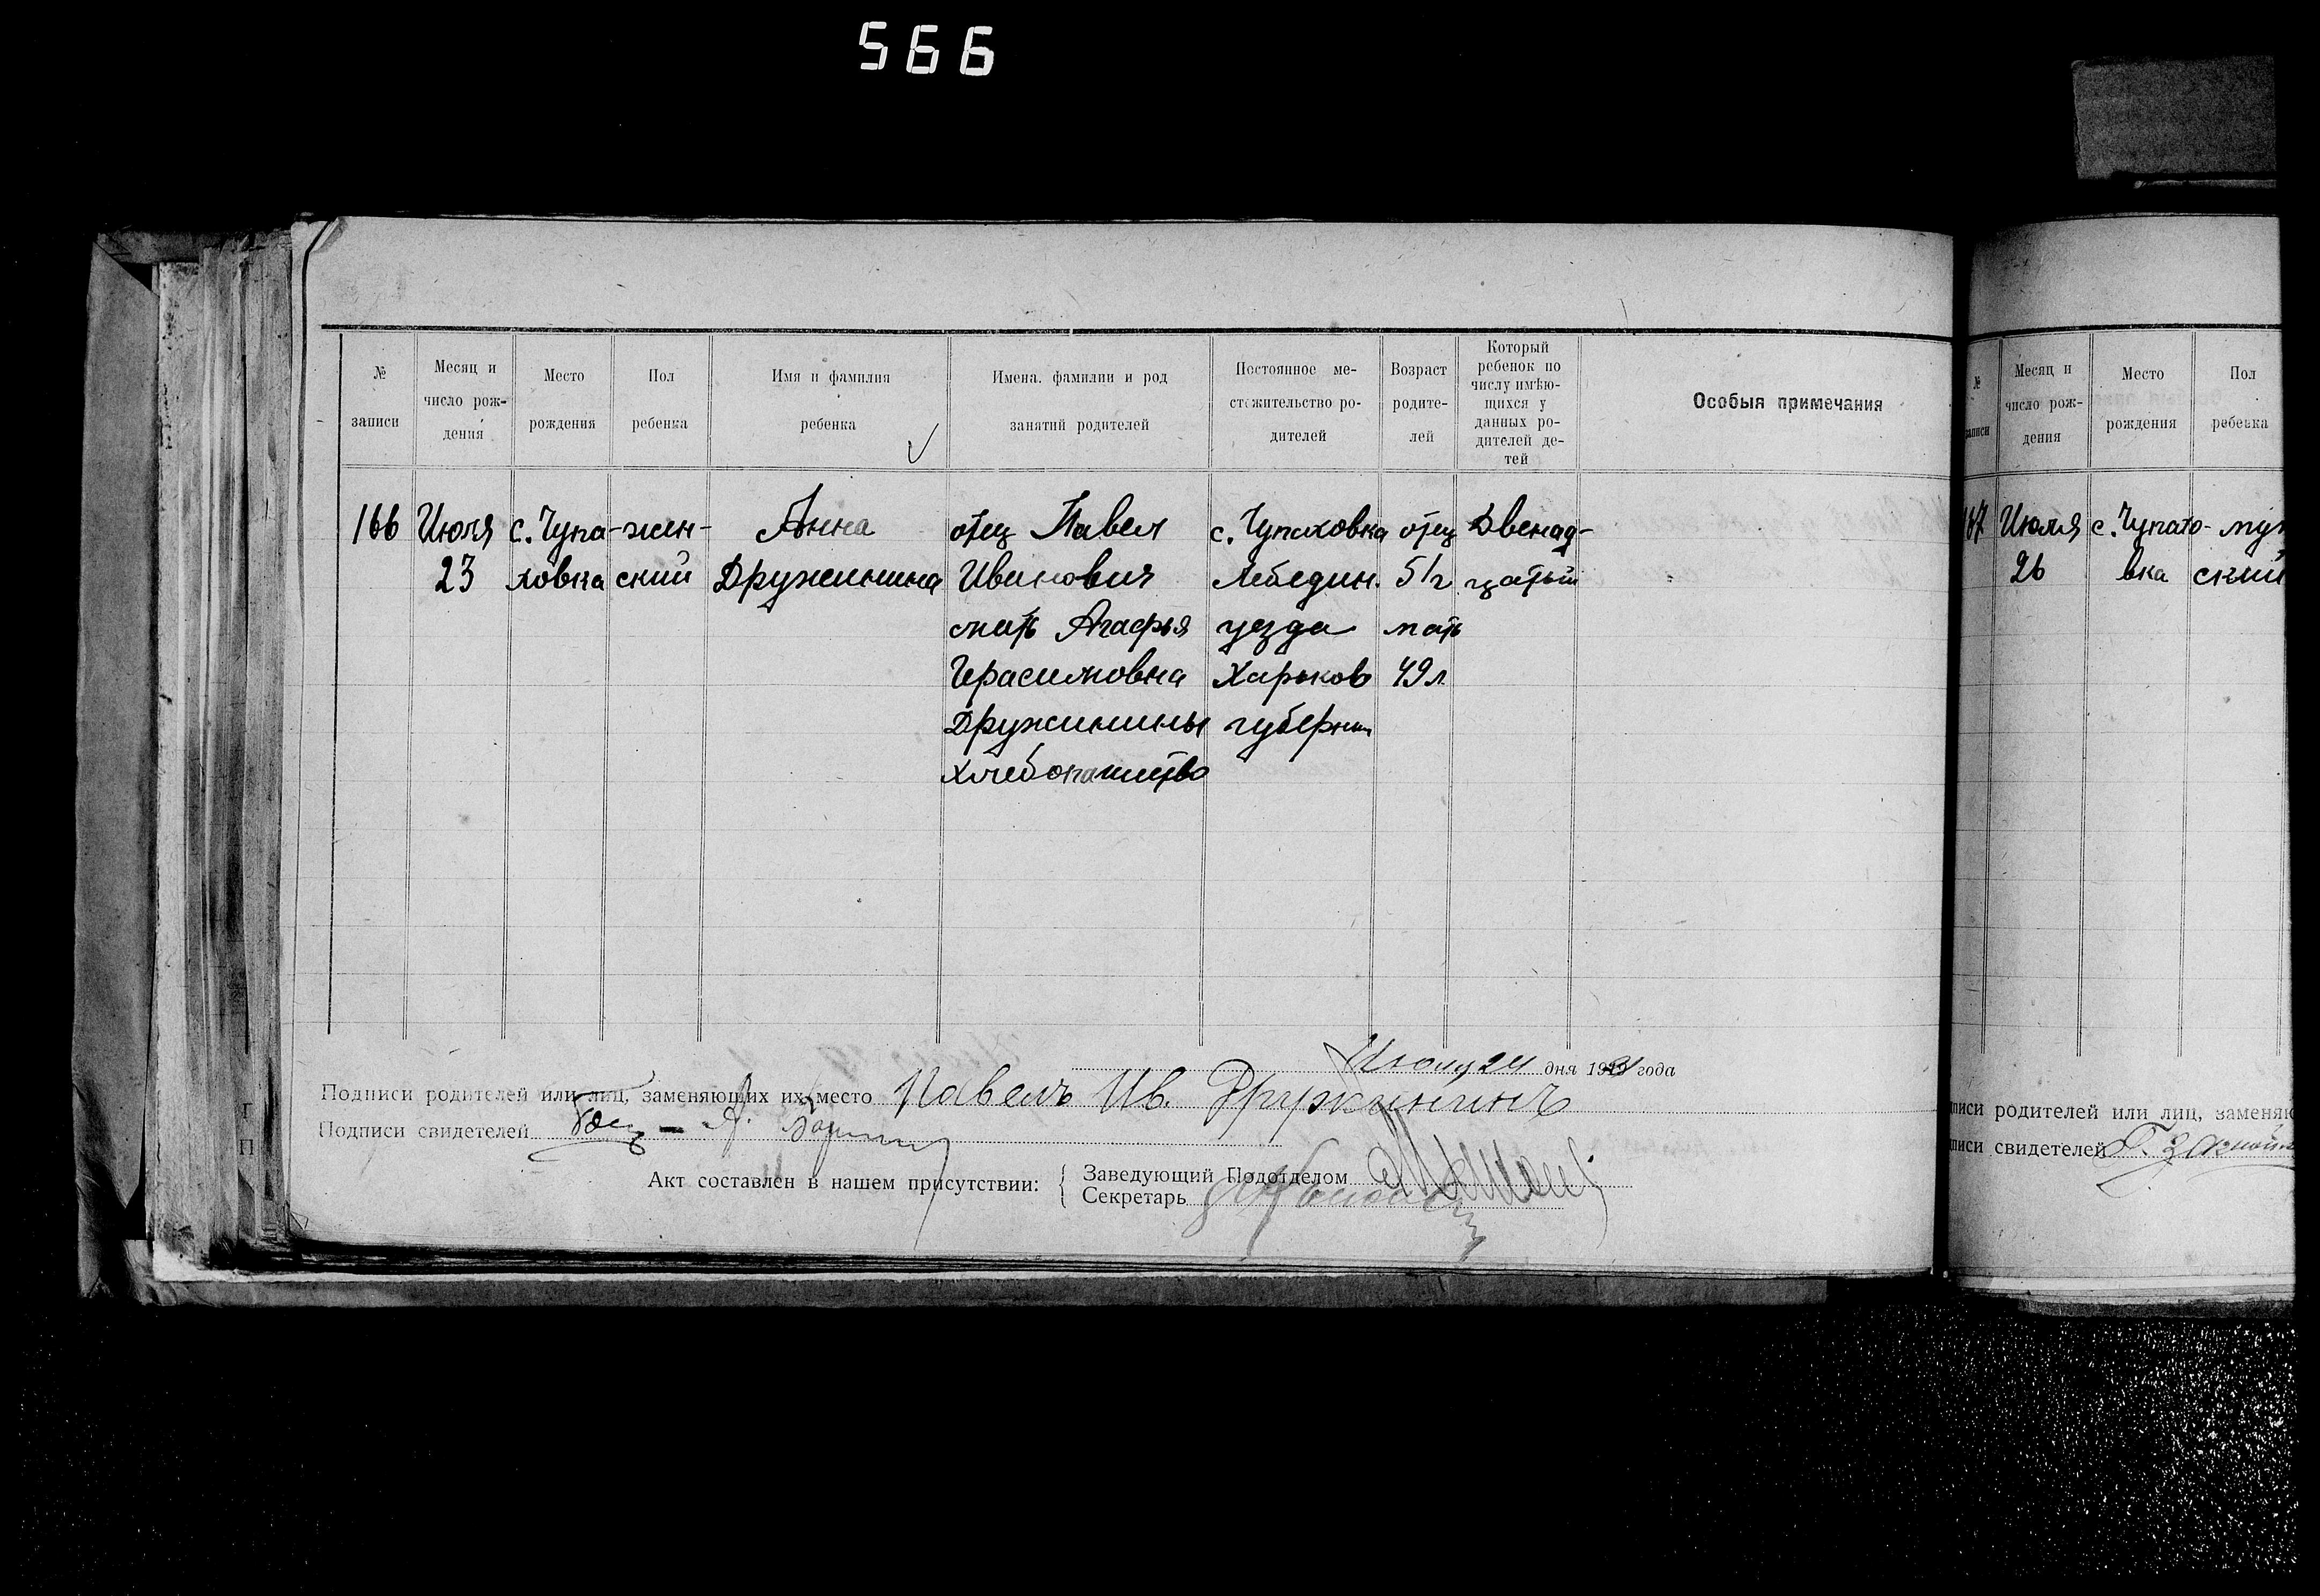 566
№ записи
Месяц и число рождения
Место рождения
Пол ребенка
Имя и фамилия ребенка
Имена, фамилии и род занятий родителей
Постоянное местожительство родителей
Возраст родителей
Который ребенок по числу имѣющихся у данных родителей детей
Особыя примечания
166 Июля с. Чупа- жен- Анна отец Павел с. Чупаховка отец Двенад-
23 ховка ский Дружинина Иванович Лебедин. 51 г. цатый
мать Агафья уезда мать
Герасимовна Харьков 49 л.
Дружинины губернии
хлебопашество
Июля 24 дня 19 года
Подписи родителей или лиц, заменяющих их место Павелъ Ив. Дружининъ
Подписи свидетелей
Акт составлен в нашем присутствии:
Заведующий Подотделом
Секретарь
№ записи
Месяц и число рождения
Место рождения
Пол ребенка
167 Июля с. Чупахо- муж
26 вка ский
писи родителей или лиц, заменяю
писи свидетелей